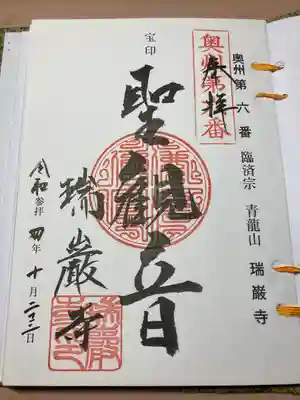 奥州第六番 臨済宗 青龍山 瑞巌寺
奥州第六番
奉拝
宝印
聖観音
瑞巖寺
参拝
令和四年十月二三日